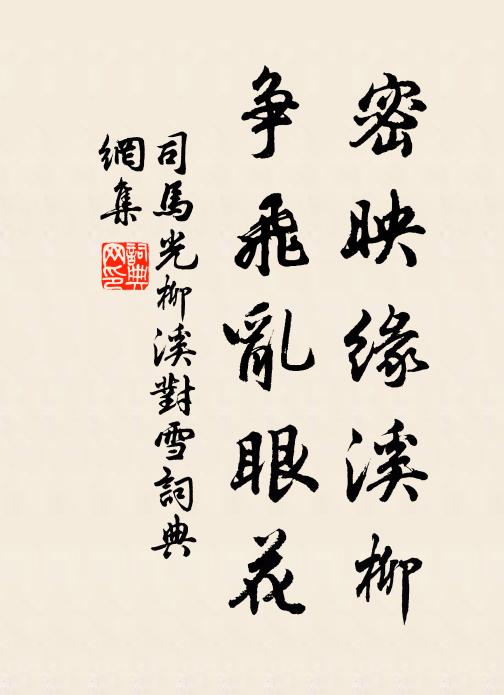 密映緣溪柳
爭飛亂眼花
司馬光柳溪對雪詞典
網集
詞典
网印